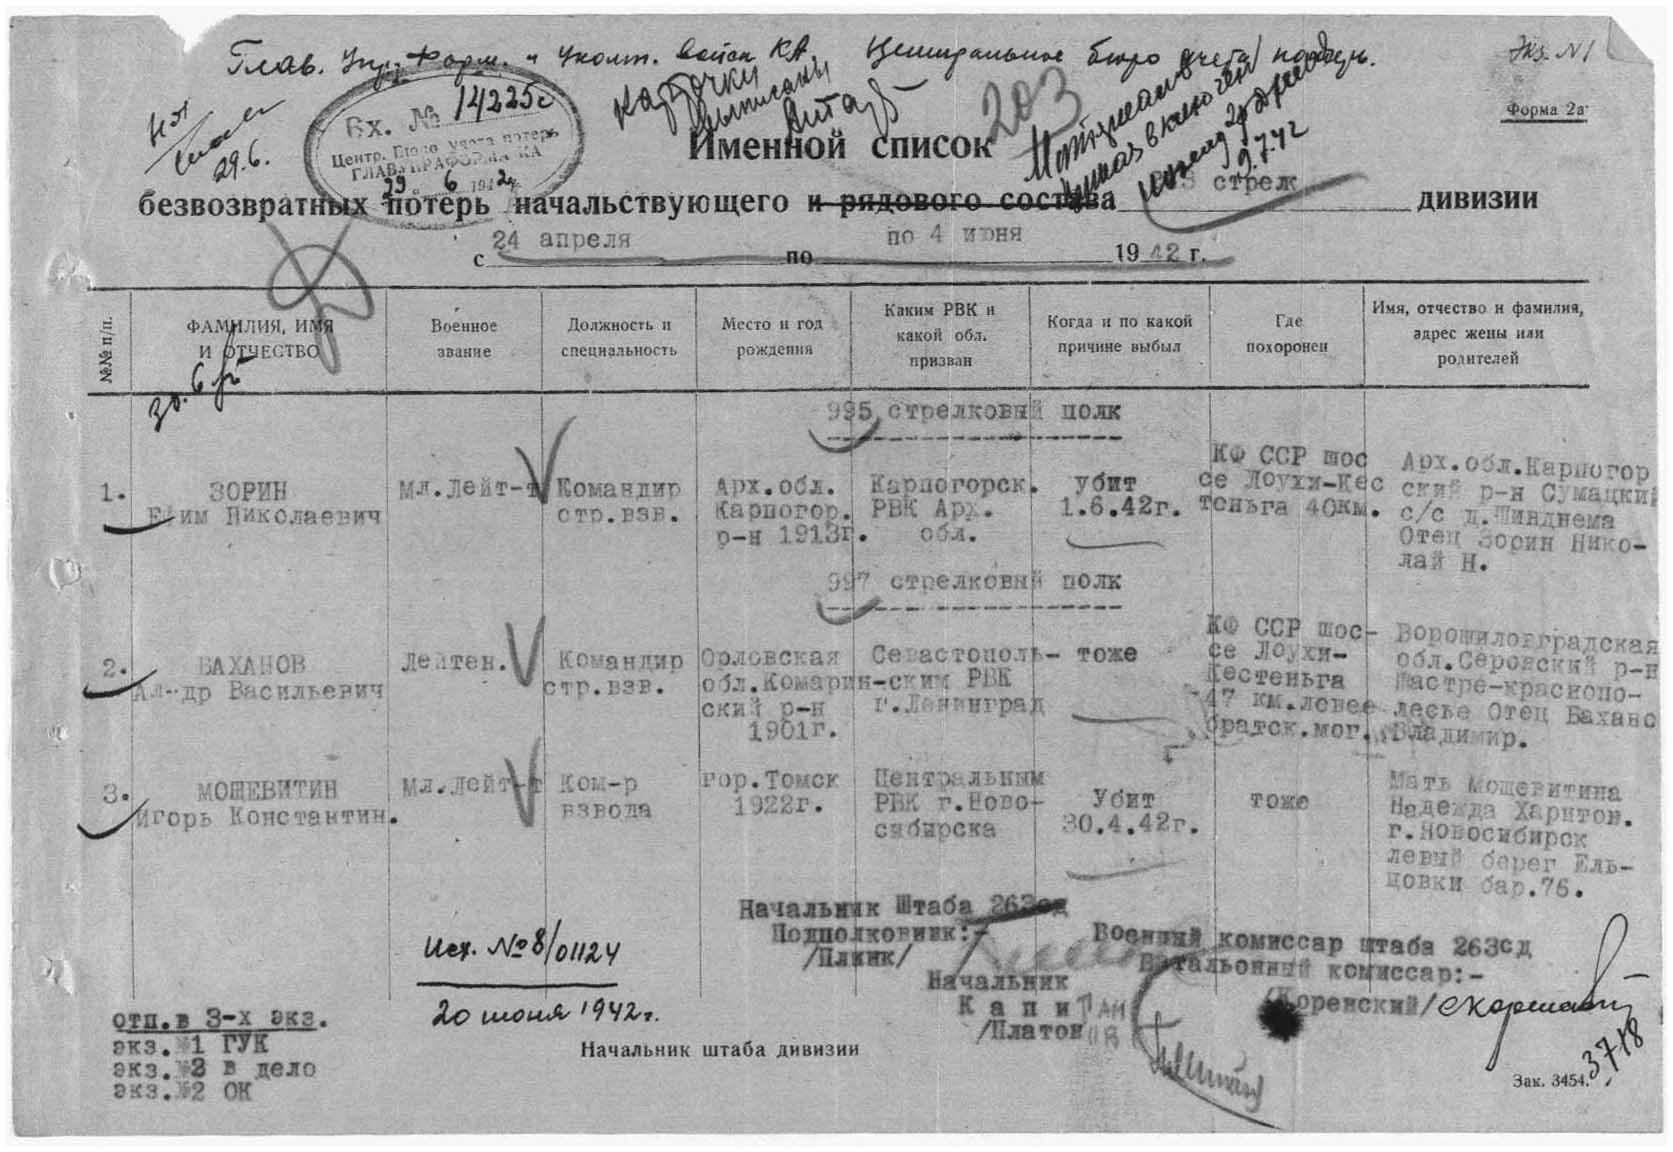 Глав. Упр. Форм. и Укомп. войск КА. Центральное бюро учета
Экз. №1
Форма 2а
Вх. № 14225с
Центр. Бюро учета потерь
ГЛАВУПРАФОРМА КА
29 6 1942
29.6.
карточки
выписаны
203
9.7.42
Именной список
безвозвратных потерь начальствующего и рядового состава 263 стрелк дивизии
с 24 апреля по по 4 июня 1942 г.
№№ п/п.
ФАМИЛИЯ, ИМЯ
И ОТЧЕСТВО
Военное
звание
Должность и
специальность
Место и год
рождения
Каким РВК и
какой обл.
призван
Когда и по какой
причине выбыл
Где
похоронен
Имя, отчество и фамилия,
адрес жены или
родителей
30.6
995 стрелковый полк
1.
ЗОРИН
Ефим Николаевич
Мл.Лейт-т
Командир
стр.взв.
Арх.обл.
Карпогор.
р-н 1913г.
Карпогорск.
РВК Арх.
обл.
убит
1.6.42г.
КФ ССР шос
се Лоухи-Кес
теньга 40км.
Арх.обл.Карпогор
ский р-н Сумацкий
с/с д.Шинднема
Отец Зорин Нико-
лай Н.
997 стрелковый полк
2.
БАХАНОВ
Ал-др Васильевич
Лейтен.
Командир
стр.взв.
Орловская
обл.Комарин
ский р-н
1901г.
Севастополь-
-ским РВК
г.Ленинград
тоже
КФ ССР шос-
се Лоухи-
Кестеньга
47 км.левее
братск.мог.
Ворошиловградская
обл.Серовский р-н
Шастре-краснопо-
лесье Отец Баханов
Владимир.
3.
МОШЕВИТИН
Игорь Константин.
Мл.Лейт-т
Ком-р
взвода
гор.Томск
1922г.
Центральным
РВК г.Ново-
сибирска
Убит
30.4.42г.
тоже
Мать Мошевитина
Надежда Харитон.
г.Новосибирск
левый берег Ель-
цовки бар.76.
Начальник Штаба 263сд
Подполковник:-
/Плкик/
Военный комиссар штаба 263сд
Батальонный комиссар:-
/Коренский/
Начальник
Капитан
/Платонов
Исх. № 8/01124
20 июня 1942г.
отп.в 3-х экз.
экз.№1 ГУК
экз.№3 в дело
экз.№2 ОК
Начальник штаба дивизии
3718
Зак. 3454.